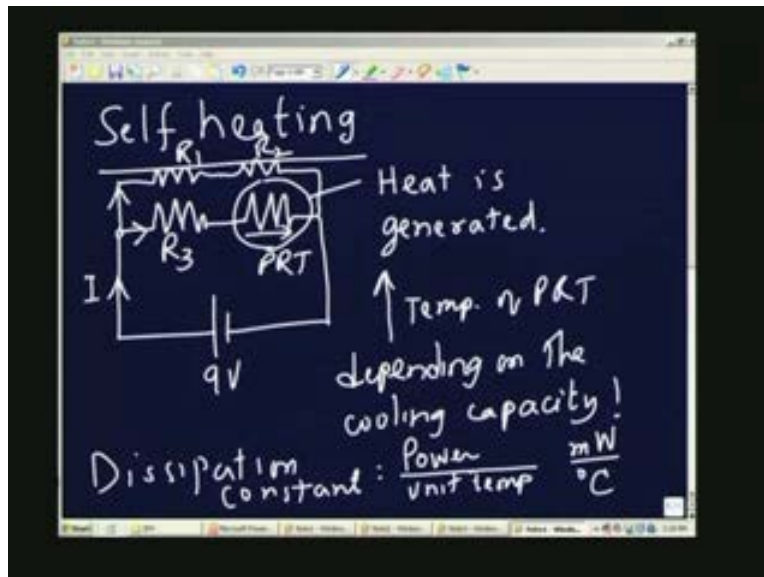 Self heating
R1 R2
Heat is
generated.
R3 PRT
I
Temp. of PRT
9V
depending on the
cooling capacity!
Dissipation
constant : Power
unit temp
mW
°C